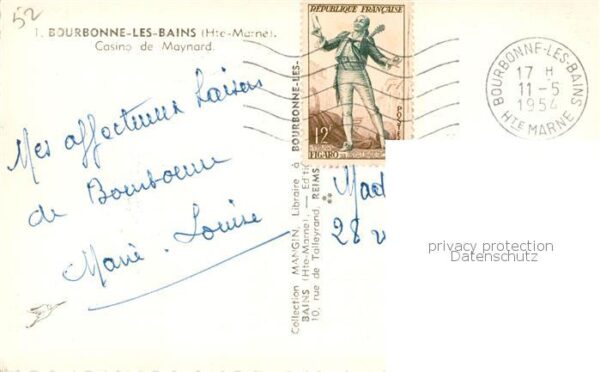 52
1. BOURBONNE-LES-BAINS (Hte-Marne).
Casino de Maynard.
Mes affectueux baisers
de Bourbonne
Marie-Louise
Collection MANGIN, Libraire à BOURBONNE-LES-
BAINS (Hte-Marne). — Editi
10, rue de Talleyrand, REIMS
REPUBLIQUE FRANÇAISE
12F
POSTES
FIGARO
BOURBONNE-LES-BAINS
17 H
11-5
1954
HTE MARNE
Mad
28
privacy protection
Datenschutz